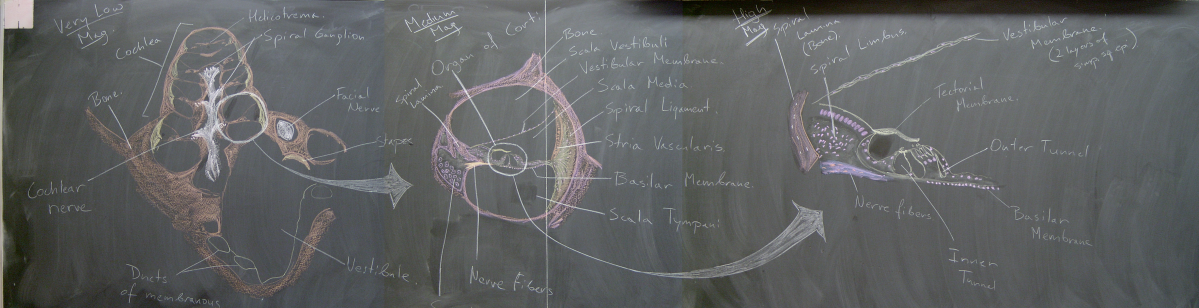 Very Low
Mag.
Helicotrema.
Spiral Ganglion
Cochlea
Bone.
Facial
Nerve
Stapes
Cochlear
nerve
Vestibule.
Ducts
of membranous
Medium
Mag.
Organ
of Corti.
Spiral
Lamina
Bone
Scala Vestibuli
Vestibular Membrane.
Scala Media
Spiral Ligament.
Stria Vascularis.
Basilar Membrane.
Scala Tympani
Nerve Fibers
High
Mag.
Spiral
Lamina
(Bone).
Spiral Limbus.
Vestibular
Membrane.
(2 layers of
simp. sq. ep.)
Tectorial
Membrane.
Outer Tunnel
Basilar
Membrane
Nerve fibers
Inner
Tunnel